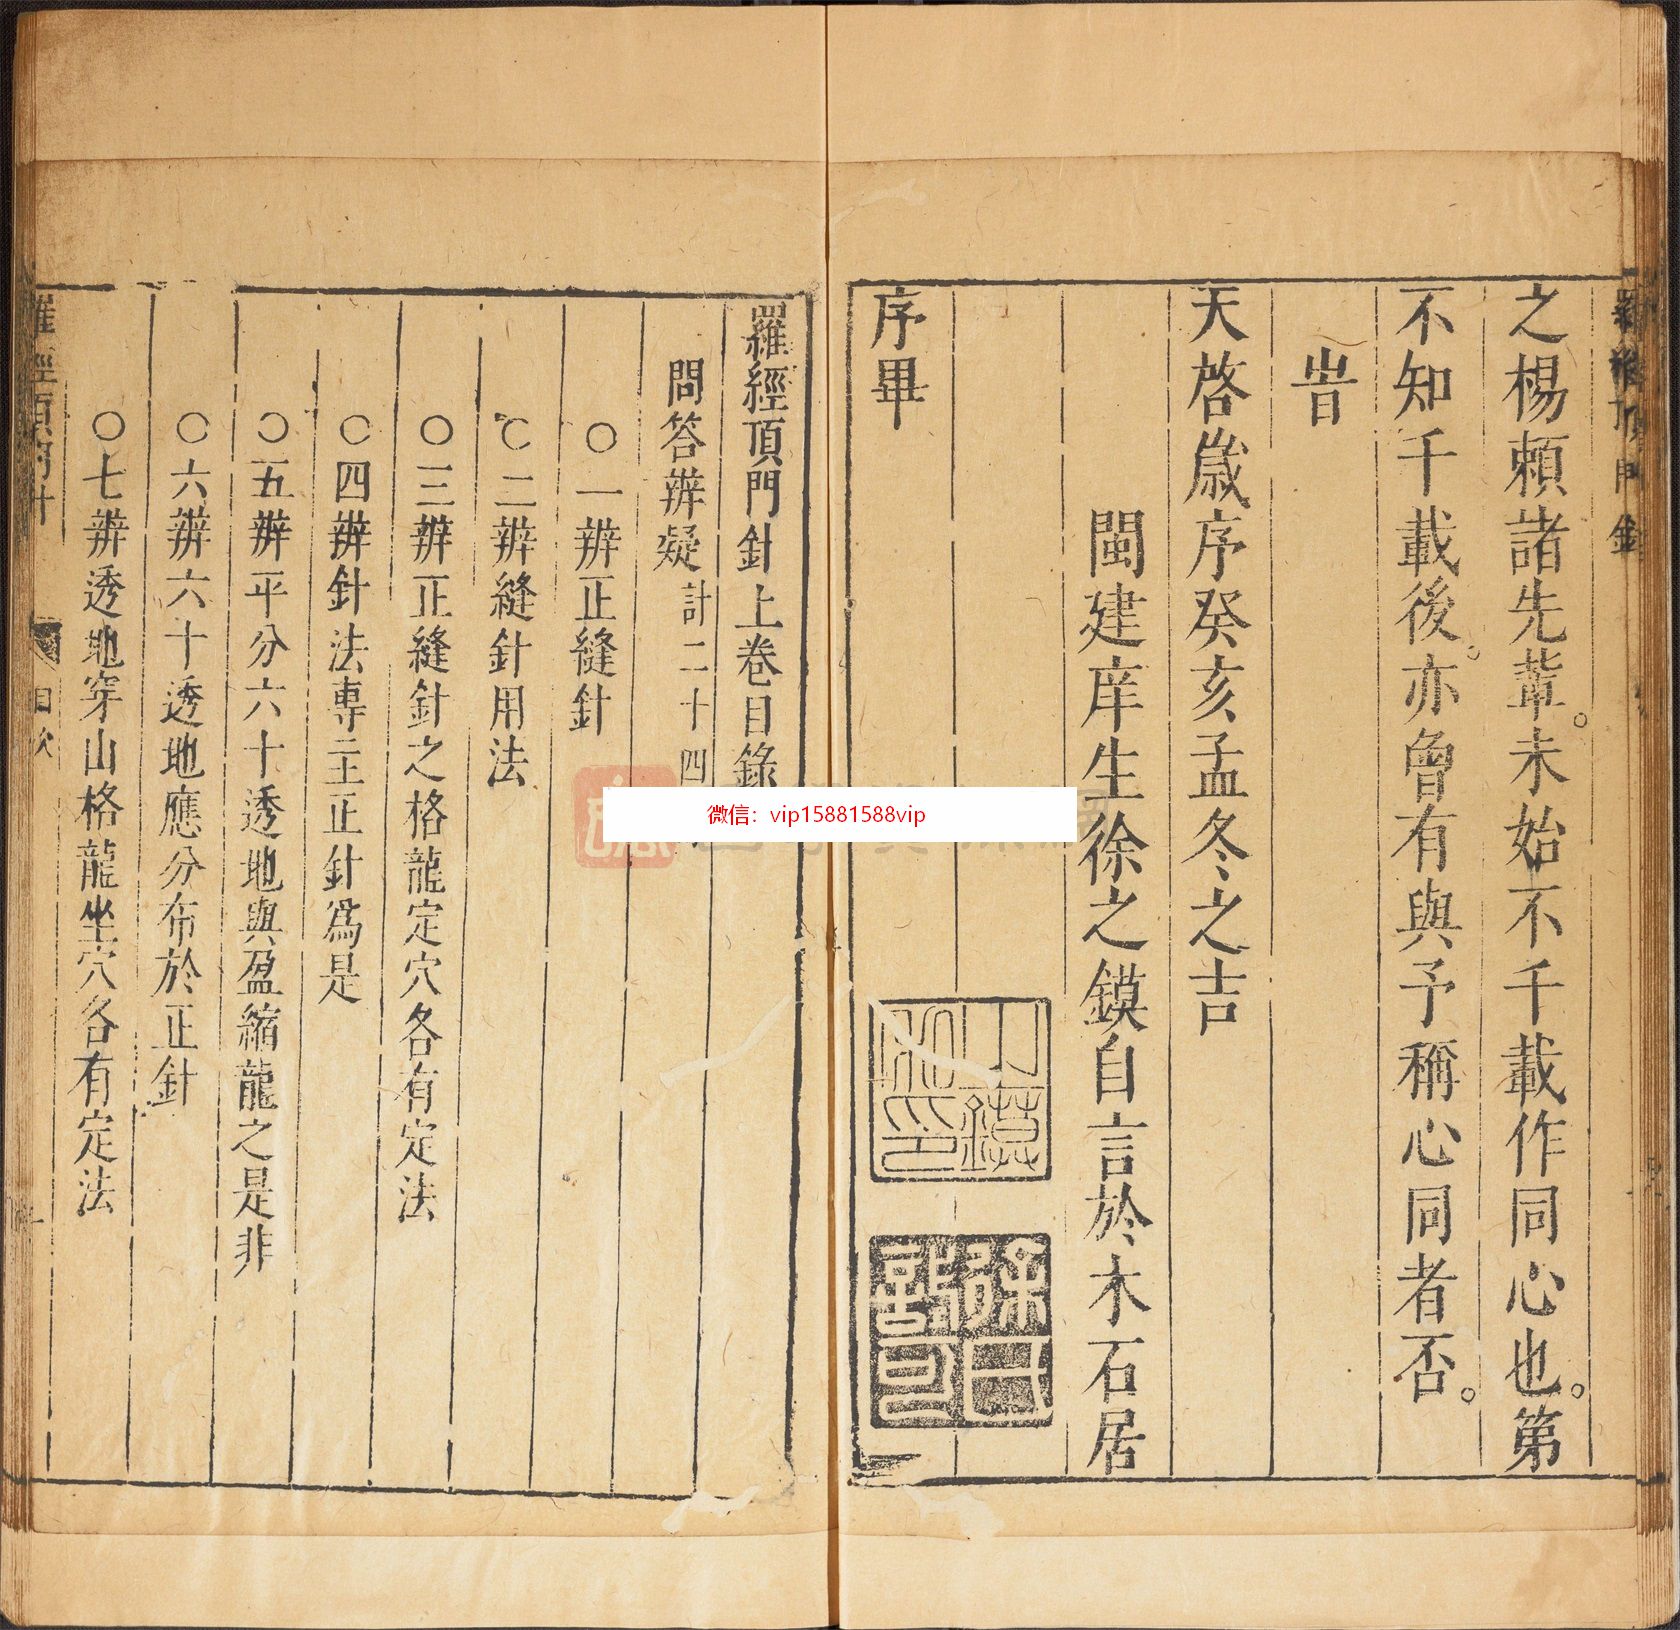 之楊賴諸先輩。未始不千載作同心也。第
不知千載後。亦曾有與予稱心同者否。
旹
天啓歲序癸亥孟冬之吉
閩建庠生徐之鏌自言於木石居
序畢
羅經頂門針上卷目錄
問答辨疑 計二十四
○一辨正縫針
○二辨縫針用法
○三辨正縫針之格龍定穴各有定法
○四辨針法專主正針爲是
○五辨平分六十透地與盈縮龍之是非
○六辨六十透地應分布於正針
○七辨透地穿山格龍坐穴各有定法
羅經頂門針
目次
微信：vip15881588vip